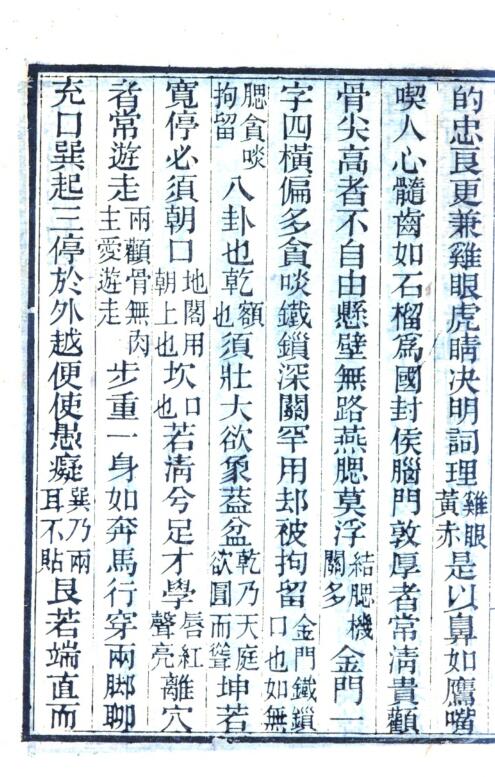 的忠良更兼雞眼虎睛決明詞理雞眼黃赤是以鼻如鷹嘴
喫人心髓齒如石榴爲國封侯腦門敦厚者常淸貴顴
骨尖高者不自由懸壁無路燕腮莫浮結腮機關多金門一
字四橫偏多貪啖鐵鎖深關罕用却被拘留金門鐵鎖口也如無
腮貪啖拘留八卦也乾額也須壯大欲象葢盆乾乃天庭欲圓而聳坤若
寬停必須朝口地閣用朝上也坎口也若淸兮足才學唇紅聲亮離穴
者常遊走兩顴骨無肉主愛遊走步重一身如奔馬行穿兩脚聊
充口巽起三停於外越便使愚癡巽乃兩耳不貼艮若端直而